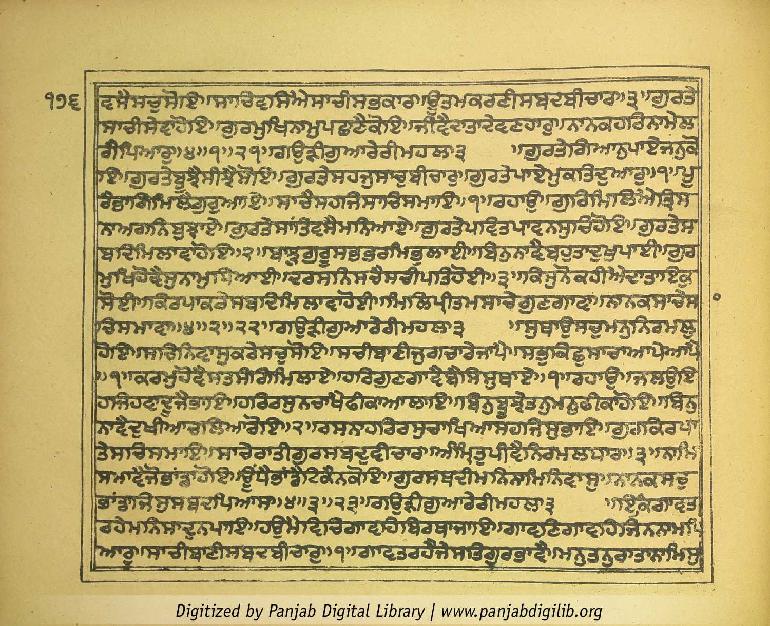 ੧੭੬
ਵਸੈਸਚੁਸੋਇ॥ਸਾਚਿਵਸਿਐਸਾਚੀਸਭਕਾਰ॥ਊਤਮਕਰਣੀਸਬਦਬੀਚਾਰ॥੩॥ਗੁਰਤੇ
ਸਾਚੀਸੇਵਾਹੋਇ॥ਗੁਰਮੁਖਿਨਾਮੁਪਛਾਣੈਕੋਇ॥ਜੀਵੈਦਾਤਾਦੇਵਣਹਾਰੁ॥ਨਾਨਕਹਰਿਨਾਮੇਲ
ਗੈਪਿਆਰੁ॥੪॥੧॥੨੧॥ਗਉੜੀਗੁਆਰੇਰੀਮਹਲਾ੩ ॥ਗੁਰਤੇਗਿਆਨੁਪਾਏਜਨੁਕੋ
ਇ॥ਗੁਰਤੇਬੂਝੈਸੀਝੈਸੋਇ॥ਗੁਰਤੇਸਹਜੁਸਾਚੁਬੀਚਾਰੁ॥ਗੁਰਤੇਪਾਏਮੁਕਤਿਦੁਆਰੁ॥੧॥ਪੂ
ਰੈਭਾਗਿਮਿਲੈਗੁਰੁਆਇ॥ਸਾਚੈਸਹਜਿਸਾਚਿਸਮਾਇ॥੧॥ਰਹਾਉ॥ਗੁਰਿਮਿਲਿਐਤ੍ਰਿਸ
ਨਾਅਗਨਿਬੁਝਾਏ॥ਗੁਰਤੇਸਾਂਤਿਵਸੈਮਨਿਆਏ॥ਗੁਰਤੇਪਵਿਤਪਾਵਨਸੁਚਿਹੋਇ॥ਗੁਰਤੇਸ
ਬਦਿਮਿਲਾਵਾਹੋਇ॥੨॥ਬਾਝੁਗੁਰੂਸਭਭਰਮਿਭੁਲਾਈ॥ਬਿਨੁਨਾਵੈਬਹੁਤਾਦੁਖੁਪਾਈ॥ਗੁਰ
ਮੁਖਿਹੋਵੈਸੁਨਾਮੁਧਿਆਈ॥ਦਰਸਨਿਸਚੈਸਚੀਪਤਿਹੋਈ॥੩॥ਕਿਸਨੋਕਹੀਐਦਾਤਾਇਕੁ
ਸੋਈ॥ਕਿਰਪਾਕਰੇਸਬਦਿਮਿਲਾਵਾਹੋਈ॥ਮਿਲਿਪ੍ਰੀਤਮਸਾਚੇਗੁਣਗਾਵਾ॥ਨਾਨਕਸਾਚੇਸਾ
ਚਿਸਮਾਵਾ॥੪॥੨॥੨੨॥ਗਉੜੀਗੁਆਰੇਰੀਮਹਲਾ੩ ॥ਸੁਥਾਉਸਚੁਮਨੁਨਿਰਮਲੁ
ਹੋਇ॥ਸਚਿਨਿਵਾਸੁਕਰੇਸਚੁਸੋਇ॥ਸਚੀਬਾਣੀਜੁਗਚਾਰੇਜਾਪੈ॥ਸਭੁਕਿਛੁਸਾਚਾਆਪੇਆਪੈ
॥੧॥ਕਰਮੁਹੋਵੈਸਤਸੰਗਿਮਿਲਾਏ॥ਹਰਿਗੁਣਗਾਵੈਬੈਸਿਸੁਥਾਏ॥੧॥ਰਹਾਉ॥ਜਲਉਇ
ਹਜਿਹਵਾਦੂਜੈਭਾਇ॥ਹਰਿਰਸੁਨਚਾਖੈਫੀਕਾਆਲਾਇ॥ਬਿਨੁਬੂਝੇਤਨੁਮਨੁਫੀਕਾਹੋਇ॥ਬਿਨੁ
ਨਾਵੈਦੁਖੀਆਚਲਿਆਰੋਇ॥੨॥ਰਸਨਾਹਰਿਰਸੁਚਾਖਿਆਸਹਜਿਸੁਭਾਇ॥ਗੁਰਕਿਰਪਾ
ਤੇਸਚਿਸਮਾਇ॥ਸਾਚੇਰਾਤੀਗੁਰਸਬਦੁਵੀਚਾਰ॥ਅੰਮ੍ਰਿਤੁਪੀਵੈਨਿਰਮਲਧਾਰ॥੩॥ਨਾਮਿ
ਸਮਾਵੈਜੋਭਾਂਡਾਹੋਇ॥ਊਂਧੈਭਾਂਡੈਟਿਕੈਨਕੋਇ॥ਗੁਰਸਬਦੀਮਨਿਨਾਮਿਨਿਵਾਸੁ॥ਨਾਨਕਸਚੁ
ਭਾਂਡਾਜਿਸੁਸਬਦਪਿਆਸ॥੪॥੩॥੨੩॥ਗਉੜੀਗੁਆਰੇਰੀਮਹਲਾ੩ ॥ਇਕਿਗਾਵਤ
ਰਹੇਮਨਿਸਾਦੁਨਪਾਇ॥ਹਉਮੈਵਿਚਿਗਾਵਹਿਬਿਰਥਾਜਾਇ॥ਗਾਵਣਿਗਾਵਹਿਜਿਨਨਾਮਪਿ
ਆਰੁ॥ਸਾਚੀਬਾਣੀਸਬਦਬੀਚਾਰੁ॥੧॥ਗਾਵਤਰਹੈਜੇਸਤਿਗੁਰਭਾਵੈ॥ਮਨੁਤਨੁਰਾਤਾਨਾਮਿਸੁ
Digitized by Panjab Digital Library | www.panjabdigilib.org